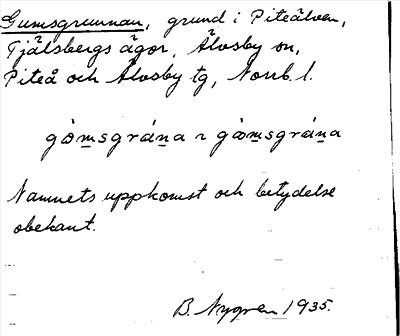 Gumsgrunnan, grund i Piteälven,
Tjälsbergs ägor, Älvsby sn,
Piteå och Älvsby tg, Norrb. l.
Namnets uppkomst och betydelse
obekant.
B. Nygren 1935.